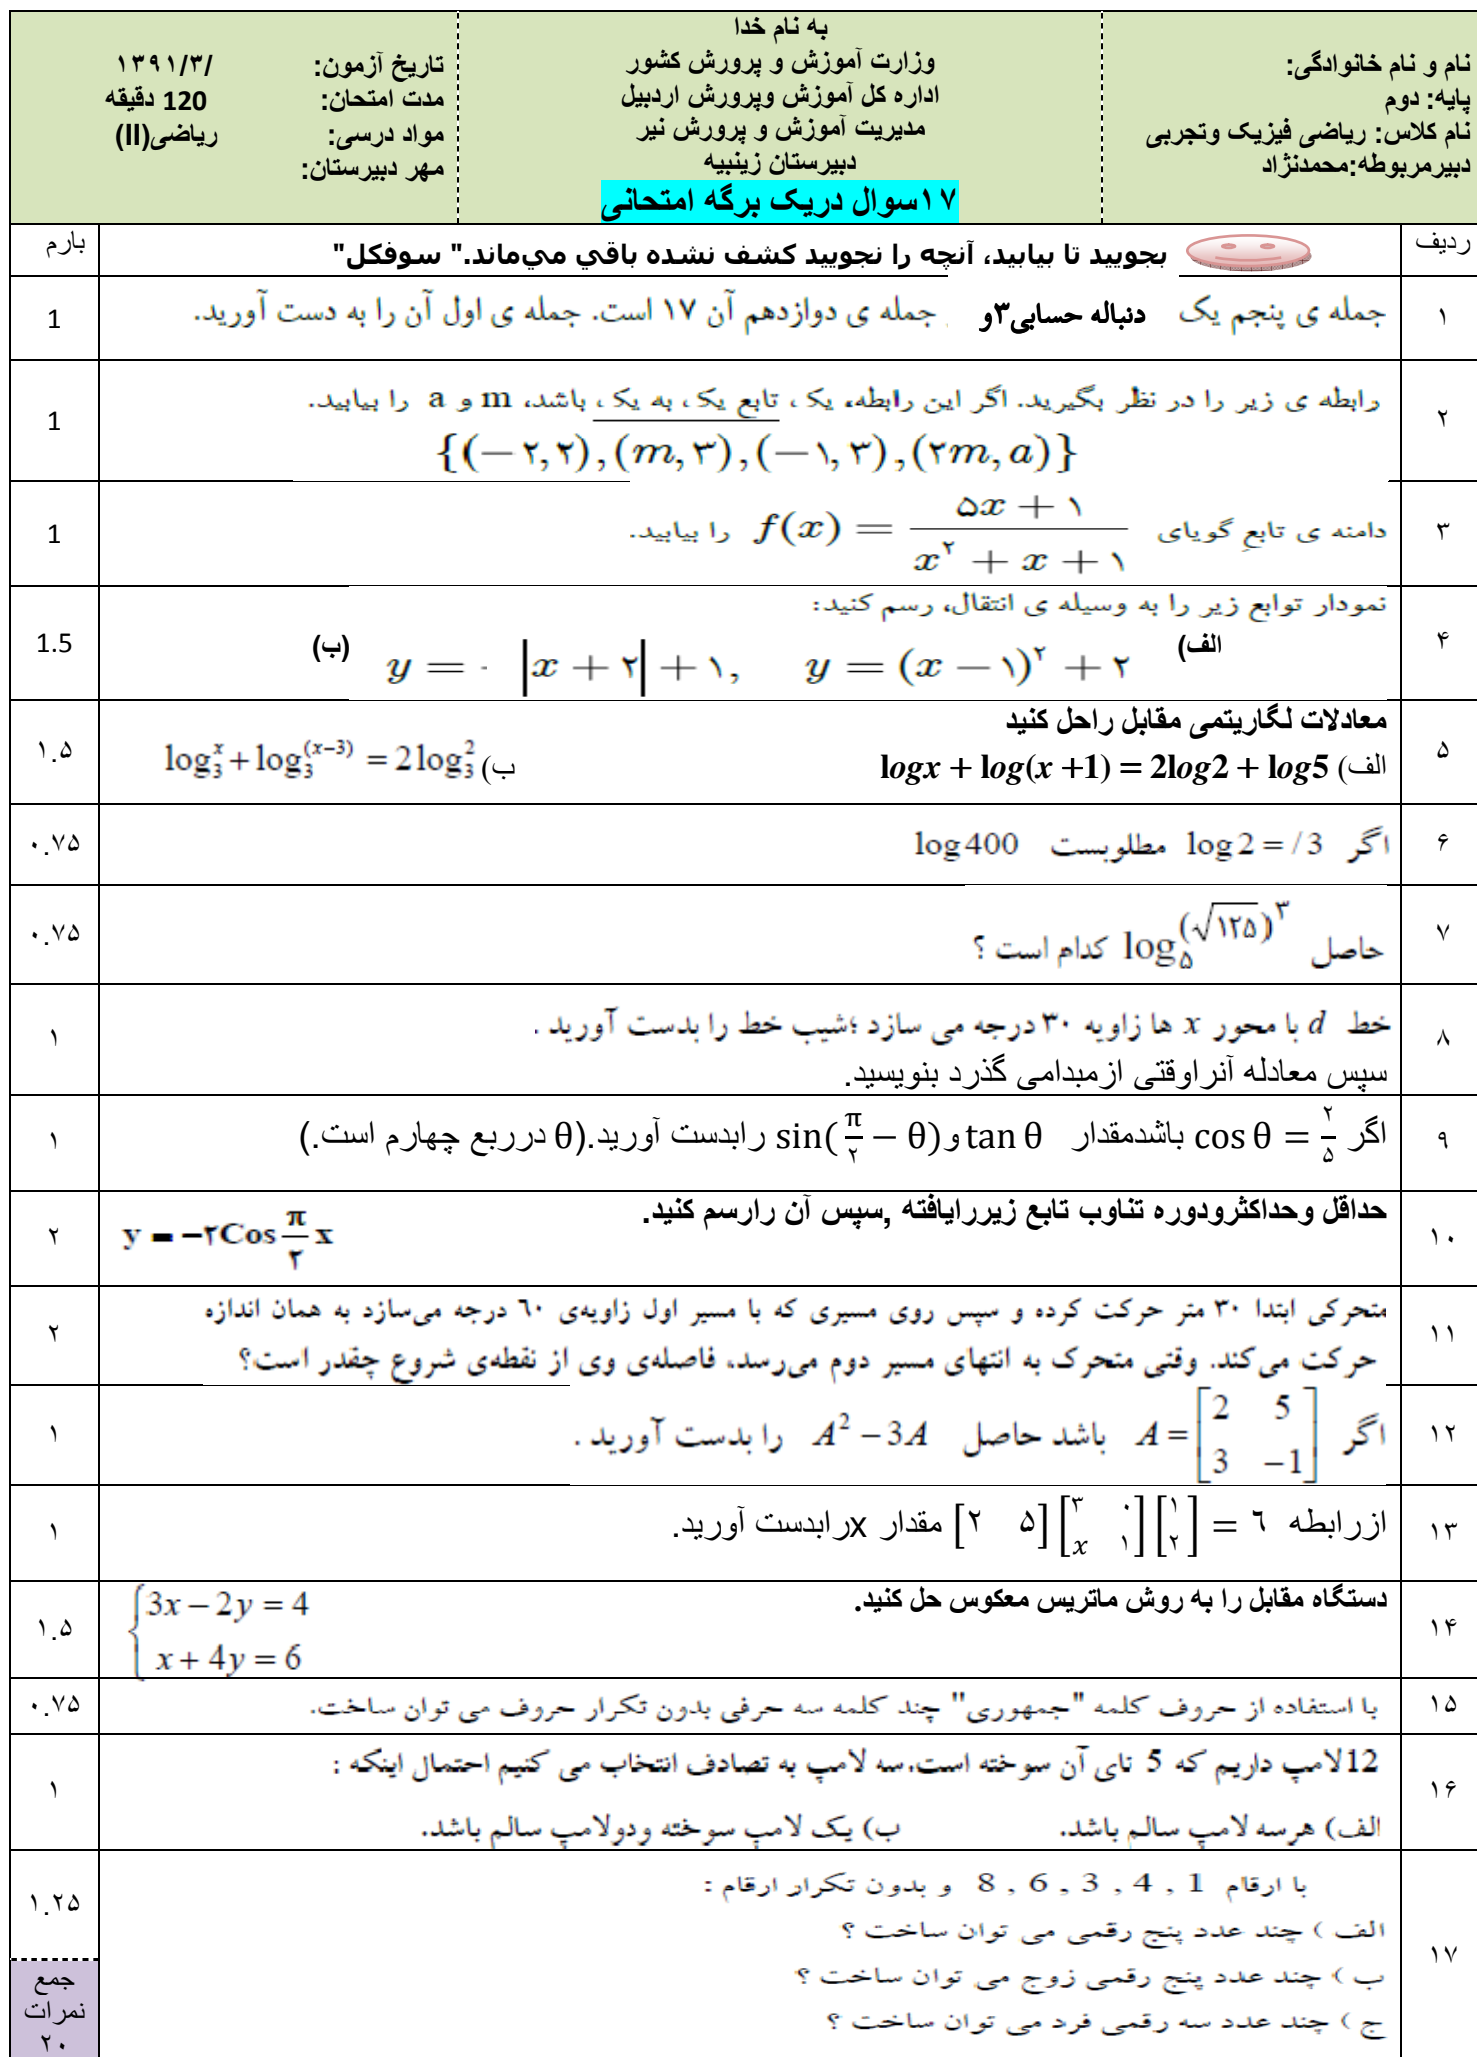 به نام خدا
وزارت آموزش و پرورش کشور
اداره کل آموزش وپرورش اردبیل
مدیریت آموزش و پرورش نیر
دبیرستان زینبیه
۱۷سوال دریک برگه امتحانی
نام و نام خانوادگی:
پایه: دوم
نام کلاس: ریاضی فیزیک وتجربی
دبیرمربوطه:محمدنژاد
تاریخ آزمون: /۱۳۹۱/۳
مدت امتحان: 120 دقیقه
مواد درسی: ریاضی(II)
مهر دبیرستان:
ردیف بجویید تا بیابید، آنچه را نجویید کشف نشده باقي مي‌ماند." سوفکل" بارم
۱ جمله ی پنجم یک دنباله حسابی۳و جمله ی دوازدهم آن ۱۷ است. جمله ی اول آن را به دست آورید. 1
۲ رابطه ی زیر را در نظر بگیرید. اگر این رابطه، یک تابع یک به یک باشد، m و a را بیابید. 1
{(−۲,۲),(m,۳),(−۱,۳),(۲m,a)}
۳ دامنه ی تابع گویای f(x) = (۵x + ۱)/(x^۲ + x + ۱) را بیابید. 1
۴ نمودار توابع زیر را به وسیله ی انتقال، رسم کنید: 1.5
الف) y = (x − ۱)^۲ + ۲ ب) y = - |x + ۲| + ۱,
۵ معادلات لگاریتمی مقابل راحل کنید ۱.۵
الف) logx + log(x +1) = 2log2 + log5 ب) log₃^x + log₃^(x−3) = 2 log₃^2
۶ اگر log 2 = /3 مطلوبست log 400 ۰.۷۵
۷ حاصل log_۵^(√۱۲۵)^۳ کدام است ؟ ۰.۷۵
۸ خط d با محور x ها زاویه ۳۰ درجه می سازد ؛شیب خط را بدست آورید . ۱
سپس معادله آنراوقتی ازمبدامی گذرد بنویسید.
۹ اگر cos θ = ۲/۵ باشدمقدار tan θ و sin(π/۲ − θ) رابدست آورید.(θ درربع چهارم است.) ۱
۱۰ حداقل وحداکثرودوره تناوب تابع زیررایافته ,سپس آن رارسم کنید. y = −۲Cos π/۲ x ۲
۱۱ متحرکی ابتدا ۳۰ متر حرکت کرده و سپس روی مسیری که با مسیر اول زاویه‌ی ٦۰ درجه می‌سازد به همان اندازه ۲
حرکت می‌کند. وقتی متحرک به انتهای مسیر دوم می‌رسد، فاصله‌ی وی از نقطه‌ی شروع چقدر است؟
۱۲ اگر A = [2 5; 3 −1] باشد حاصل A² − 3A را بدست آورید . ۱
۱۳ ازرابطه [۲ ۵][۳ ۰; x ۱][۱; ۲] = ٦ مقدار xرابدست آورید. ۱
۱۴ دستگاه مقابل را به روش ماتریس معکوس حل کنید. ۱.۵
3x − 2y = 4
x + 4y = 6
۱۵ با استفاده از حروف کلمه "جمهوری" چند کلمه سه حرفی بدون تکرار حروف می توان ساخت. ۰.۷۵
۱۶ 12لامپ داریم که 5 تای آن سوخته است.سه لامپ به تصادف انتخاب می کنیم احتمال اینکه : ۱
الف) هرسه لامپ سالم باشد. ب) یک لامپ سوخته ودولامپ سالم باشد.
۱۷ با ارقام 1 , 4 , 3 , 6 , 8 و بدون تکرار ارقام : ۱.۲۵
الف ) چند عدد پنج رقمی می توان ساخت ؟
ب ) چند عدد پنج رقمی زوج می توان ساخت ؟
ج ) چند عدد سه رقمی فرد می توان ساخت ؟
جمع
نمرات
۲۰